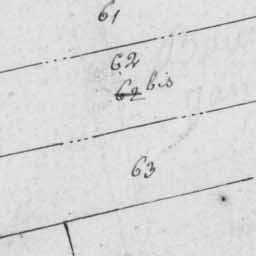 61
62
62 bis
63